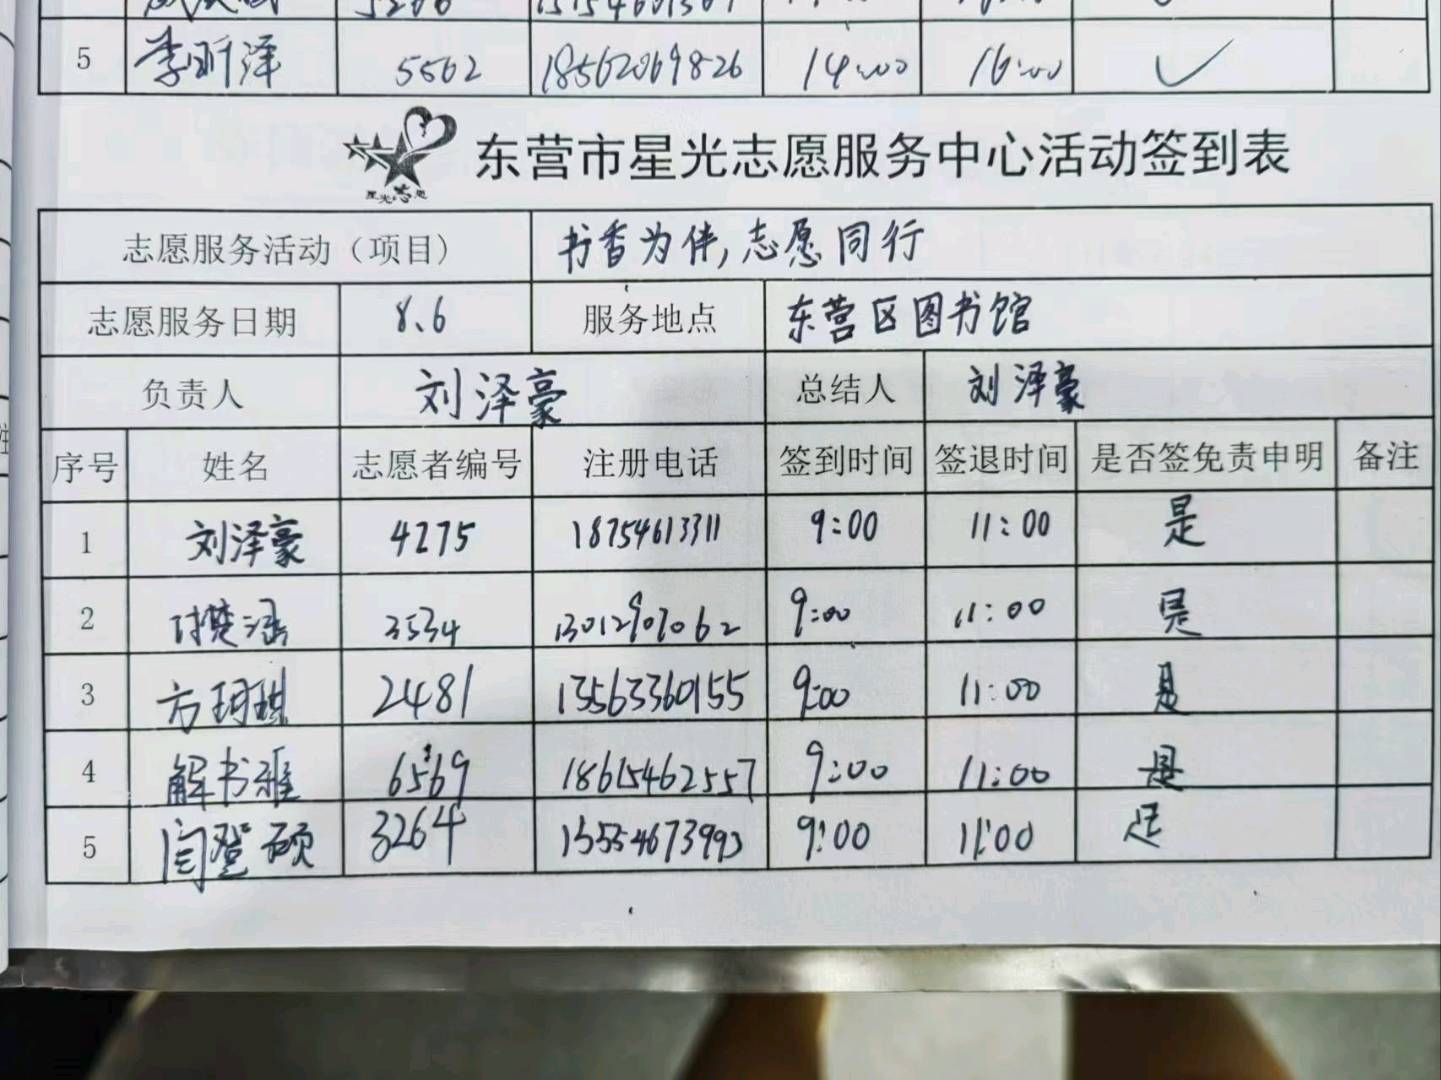 5 李昕泽 5562 18562069826 14:00 16:00 ✓
星光志愿
东营市星光志愿服务中心活动签到表
志愿服务活动（项目） 书香为伴,志愿同行
志愿服务日期 8.6 服务地点 东营区图书馆
负责人 刘泽豪 总结人 刘泽豪
序号 姓名 志愿者编号 注册电话 签到时间 签退时间 是否签免责申明 备注
1 刘泽豪 4275 18754613311 9:00 11:00 是
2 付楚涵 3534 13012907062 9:00 11:00 是
3 方珂琪 2481 13563360155 9:00 11:00 是
4 解书雅 6569 18615462557 9:00 11:00 是
5 闫登硕 3264 9:00 11:00 是